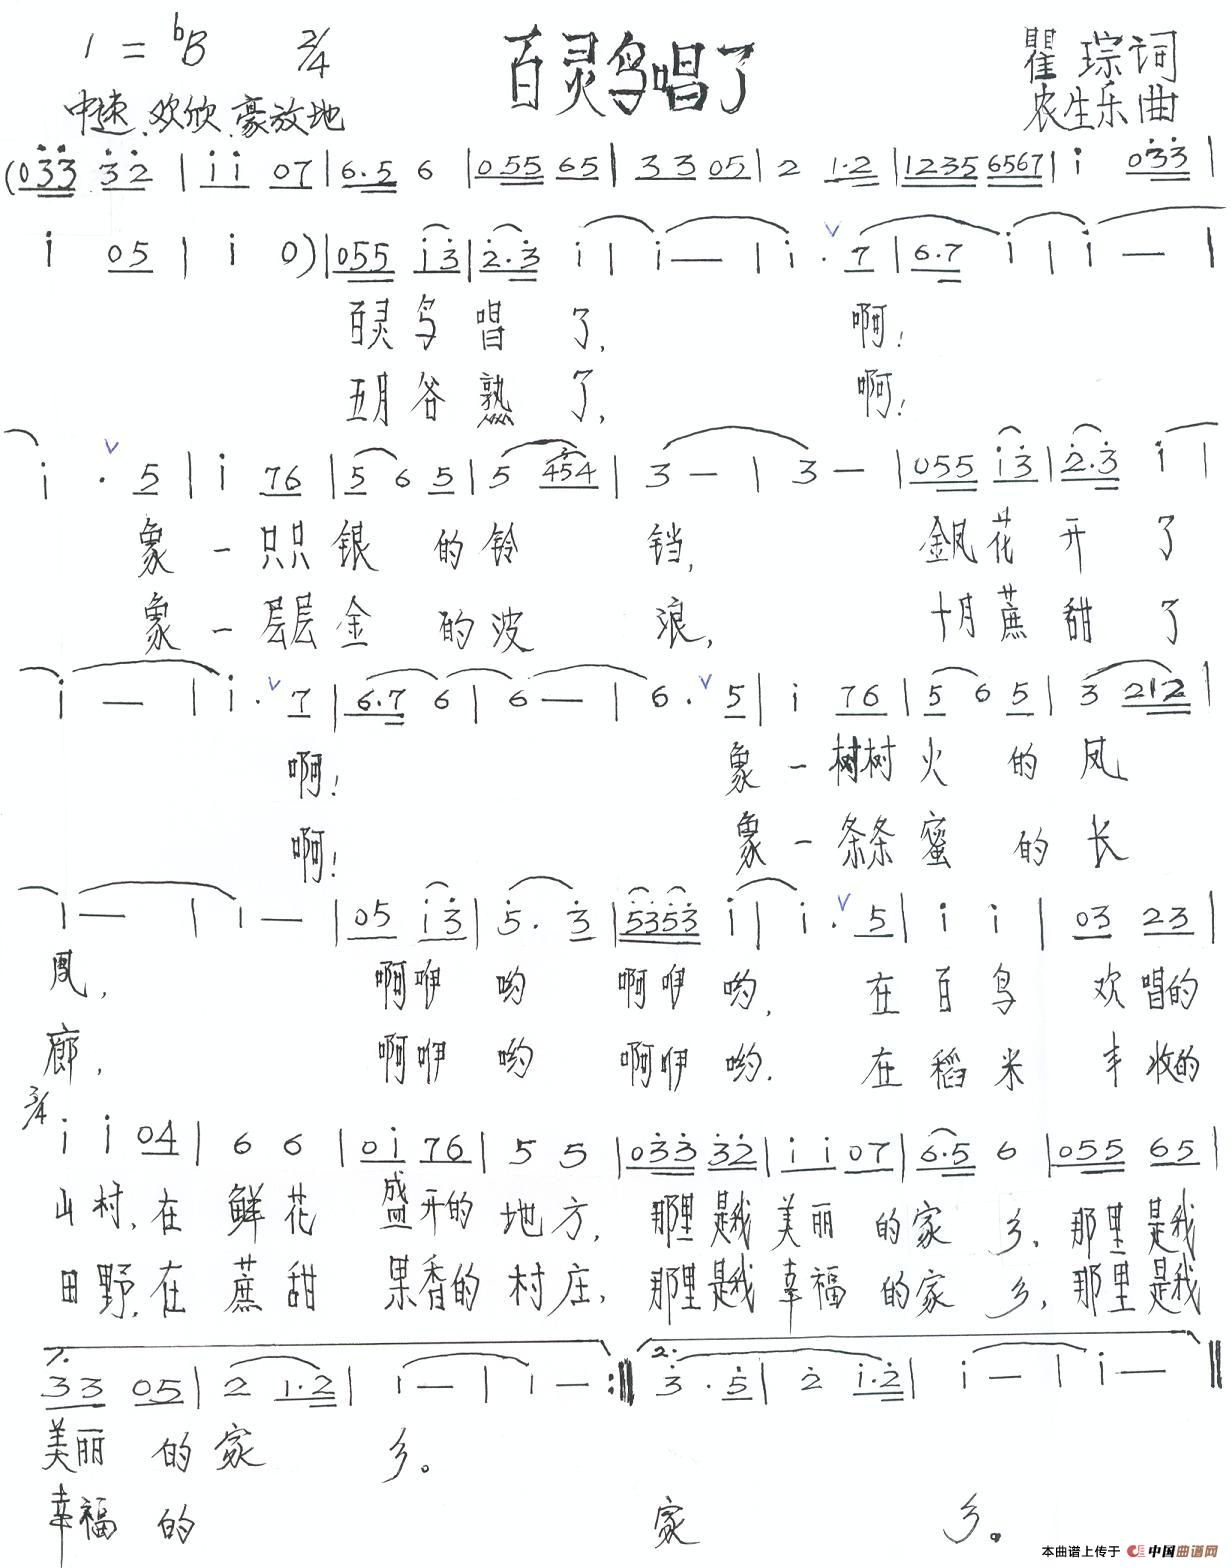 1=ᵇB 2/4 百灵鸟唱了 瞿琮词
中速、欢欣、豪放地 农生乐曲
(033 32 | ii 07 | 6.5 6 | 055 65 | 33 05 | 2 1.2 | 1235 6567 | i 033 |
i 05 | i 0) | 055 i3 | 2.3 i | i — | i . 7 | 6.7 i | i — |
百灵鸟唱了, 啊!
五月谷熟了, 啊!
i . 5 | i 76 | 5 6 5 | 5 454 | 3 — | 3 — | 055 i3 | 2.3 i |
象一只只银的铃铛, 金凤花开了
象一层层金的波浪, 十月蔗甜了
i — | i . 7 | 6.7 6 | 6 — | 6 . 5 | i 76 | 5 6 5 | 3 212 |
啊! 象一树树火的凤
啊! 象一条条蜜的长
i — | i — | 05 i3 | 5 . 3 | 5353 i | i . 5 | i i | 03 23 |
凰, 啊咿哟啊咿哟, 在百鸟欢唱的
廊, 啊咿哟啊咿哟. 在稻米丰收的
3/4 i i 04 | 6 6 | 0i 76 | 5 5 | 033 32 | i i 07 | 6.5 6 | 055 65 |
山村,在鲜花盛开的地方,那里是我美丽的家乡、那里是我
田野,在蔗甜果香的村庄,那里是我幸福的家乡,那里是我
1. 33 05 | 2 1.2 | i — | i — :‖ 2. 3 . 5 | 2 i.2 | i — | i — ‖
美丽的家乡。
幸福的家乡。
本曲谱上传于 中国曲谱网